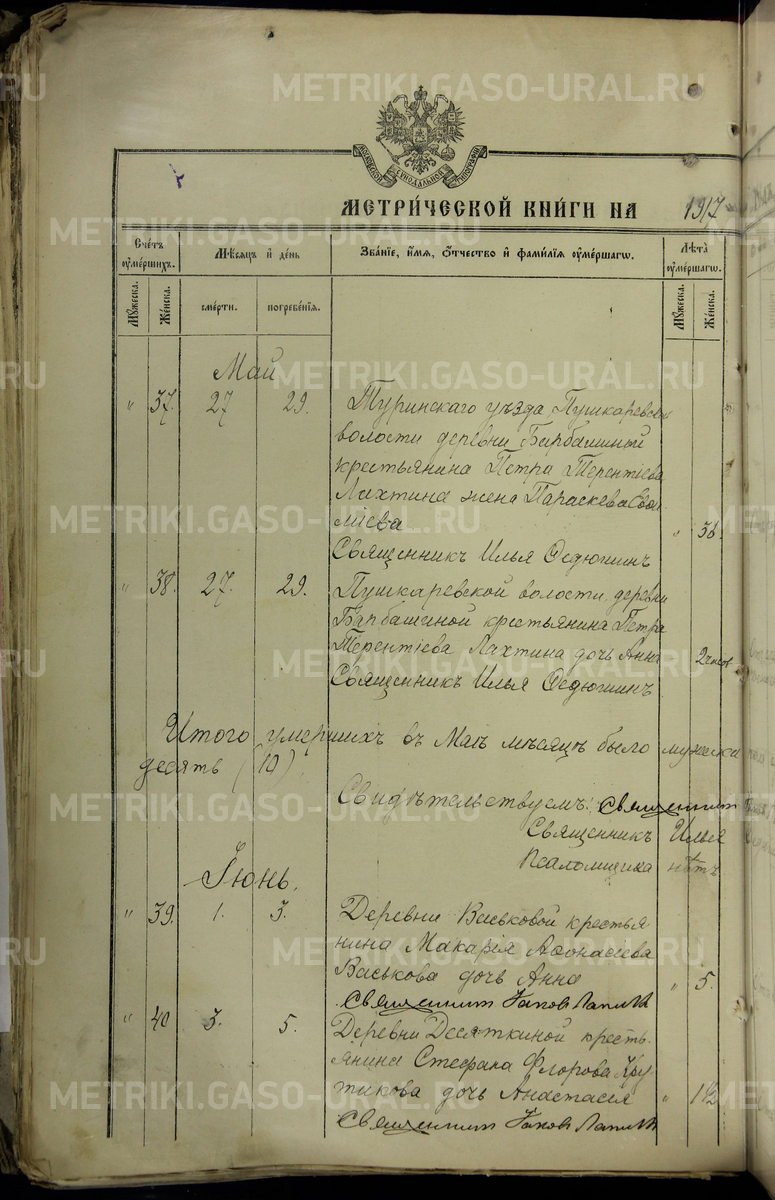 METRIKI.GASO-URAL.RU
МОСКОВСКОЙ СѴНОДАЛЬНОЙ ТИПОГРАФІИ
МЕТРИ́ЧЕСКОЙ КНИ́ГИ НА 1917
Сче́тъ ᲂу҆ме́ршихъ.
Мѣ́сяцъ и҆ де́нь
Зва́нїе, и҆́мѧ, ѻ҆́тчество и҆ фами́лїѧ ᲂу҆ме́ршагѡ.
Лѣ́та ᲂу҆ме́ршагѡ.
Мꙋ́жеска.
Же́нска.
сме́рти.
погребе́нїѧ.
Мꙋ́жеска.
Же́нска.
Май
" 37. 27 29. Туринскаго уѣзда Пушкаревской
волости деревни Барбашиной
крестьянина Петра Терентіева
Лахтина жена Параскева
" 38.
Священникъ Илья Федюшинъ
" 38. 27. 29. Пушкаревской волости деревни
Барбашиной крестьянина Петра
Терентіева Лахтина дочь Анна 2 часов
Священникъ Илья Федюшинъ
Итого умершихъ въ Маѣ мѣсяцѣ было мужеска
десять (10)
Свидѣтельствуемъ: Священник
Священникъ Илья
Псаломщика нѣтъ
Іюнь.
" 39. 1. 3. Деревни Васьковой крестья-
нина Макарія Афонасіева
Васькова дочь Анна " 5.
Священник Іаков
" 40 3. 5. Деревни Десяткиной кресть-
янина Стефана Флорова Кру
тикова дочь Анастасія " 1½
Священник Іаков